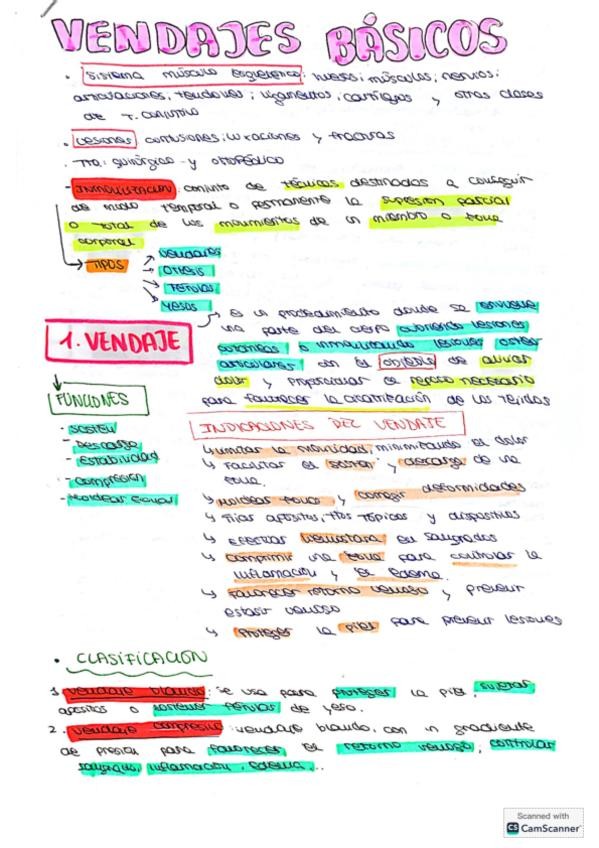 VENDAJES BÁSICOS
· Sistema músculo esquelético: huesos; músculos; nervios;
articulaciones, tendones; ligamentos; cartílagos y otras clases
de T. conjuntivo
· Lesiones: contusiones; luxaciones y fracturas
· Tto: quirúrgico y ortopédico
- INMOVILIZACIÓN: conjunto de técnicas destinadas a conseguir
de modo temporal o permanente la supresión parcial
o total de los movimientos de un miembro o zona
corporal
TIPOS
vendajes
Ortesis
Férulas
Yesos
1. VENDAJE
Es un procedimiento donde se envuelve
una parte del cuerpo cubriendo lesiones
cutáneas o inmovilizando lesiones osteo
articulares con el objetivo de aliviar
dolor y proporcionar el reposo necesario
para favorecer la cicatrización de los tejidos
FUNCIONES
- Sostén
- Descarga
- Estabilidad
- Compresión
- Moldear zonas
INDICACIONES DEL VENDAJE
↳ Limitar la movilidad, minimizando el dolor
↳ Facilitar el sostén y descarga de una
zona.
↳ Moldear zonas y corregir deformidades
↳ Fijar apósitos, ttos tópicos y dispositivos
↳ Efectuar hemostasia en sangrados
↳ Comprimir una zona para controlar la
inflamación y el edema.
↳ Favorecer retorno venoso y prevenir
estasis venoso
↳ Proteger la piel para prevenir lesiones
· CLASIFICACIÓN
1. Vendaje blando: se usa para proteger la piel, sujetar
apósitos o sostener férulas de yeso.
2. Vendaje compresivo: vendaje blando, con un gradiente
de presión para favorecer el retorno venoso, controlar
sangrado, inflamación, edema...
Scanned with
CS CamScanner